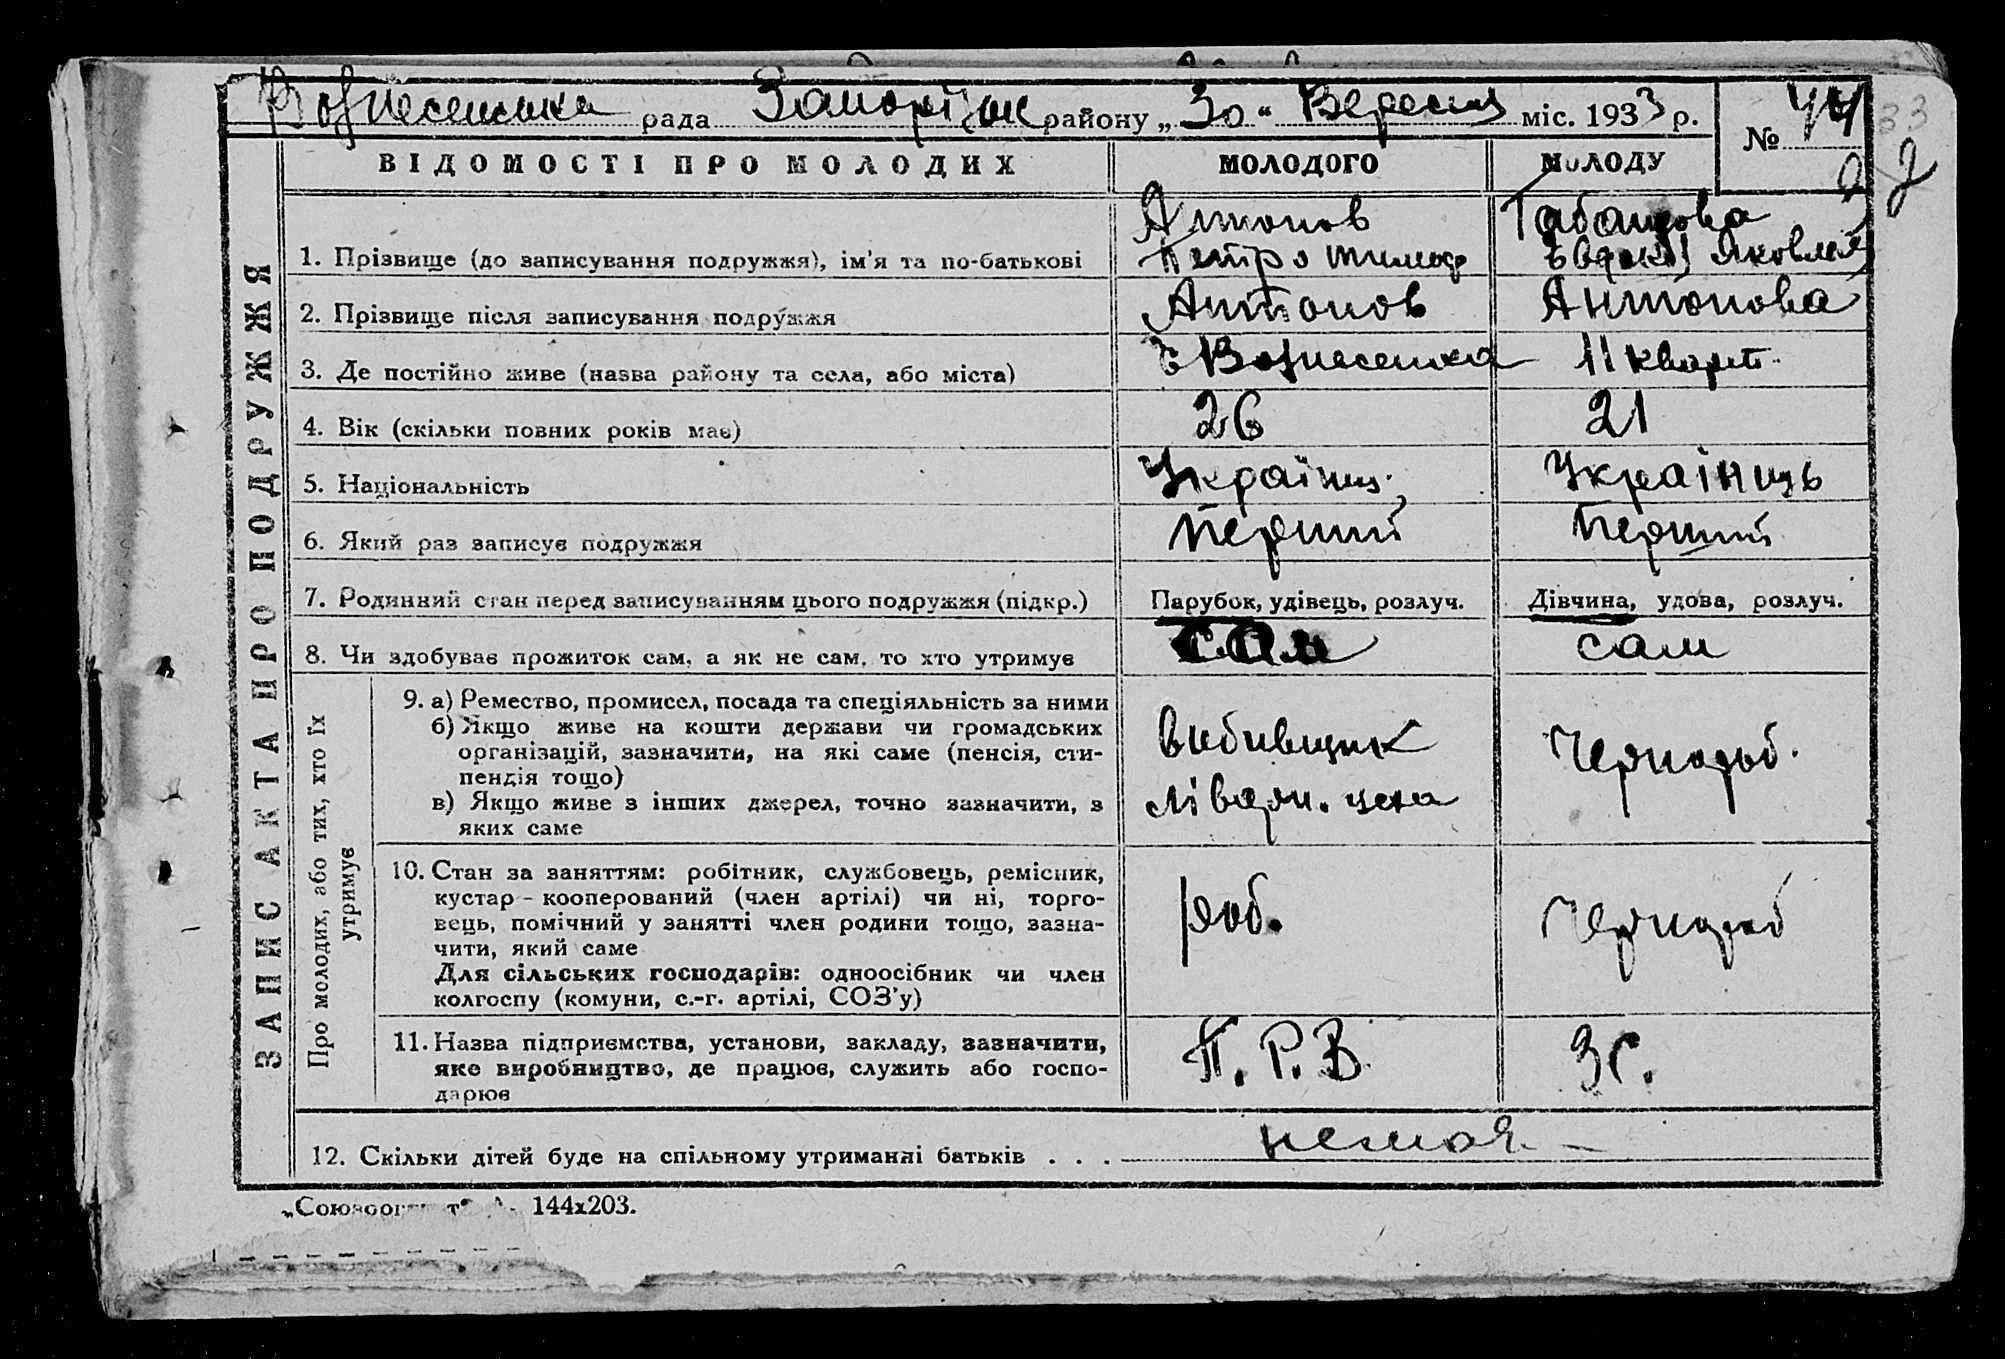 Вознесенська рада Запоріжж району „30“ Вересня міс. 1933 р.
№ 44
33
ВІДОМОСТІ ПРО МОЛОДИХ МОЛОДОГО МОЛОДУ
ЗАПИС АКТА ПРО ПОДРУЖЖЯ
Антонов
Петро Тимоф Явдокі Яковлев
1. Прізвище (до записування подружжя), ім'я та по-батькові
2. Прізвище після записування подружжя Антонов Антонова
3. Де постійно живе (назва району та села, або міста) Вознесенка 11 кварт.
4. Вік (скільки повних років має) 26 21
5. Національність Українц. Українць
6. Який раз записує подружжя Перший Перший
7. Родинний стан перед записуванням цього подружжя (підкр.) Парубок, удівець, розлуч. Дівчина, удова, розлуч.
8. Чи здобуває прожиток сам, а як не сам, то хто утримує сам сам
Про молодих, або тих, хто їх
утримує
9. а) Ремество, промисел, посада та спеціяльність за ними
б) Якщо живе на кошти держави чи громадських
організацій, зазначити, на які саме (пенсія, сти-
пендія тощо)
в) Якщо живе з інших джерел, точно зазначити, з
яких саме
вибивщик
ліварн. цеха
Чернороб.
10. Стан за заняттям: робітник, службовець, ремісник,
кустар-кооперований (член артілі) чи ні, торго-
вець, помічний у занятті член родини тощо, зазна-
чити, який саме
Для сільських господарів: одноосібник чи член
колгоспу (комуни, с.-г. артілі, СОЗ'у)
роб. Чернороб
11. Назва підприємства, установи, закладу, зазначити,
яке виробництво, де працює, служить або госпо-
дарює
П. Р. В. ЗС.
12. Скільки дітей буде на спільному утриманні батьків . . . немоя —
144х203.